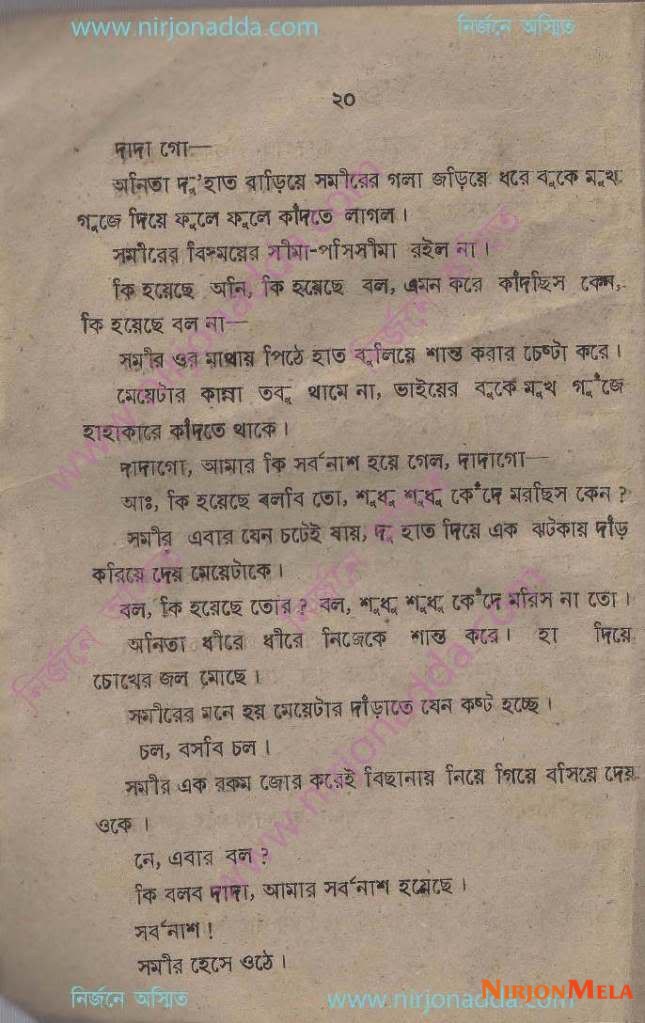 www.nirjonadda.com নির্জনে অস্মিত
২০
দাদা গো—
অনিতা দু'হাত বাড়িয়ে সমীরের গলা জড়িয়ে ধরে বুকে মুখ
গুজে দিয়ে ফুলে ফুলে কাঁদতে লাগল।
সমীরের বিস্ময়ের সীমা-পরিসীমা রইল না।
কি হয়েছে অনি, কি হয়েছে বল, এমন করে কাঁদছিস কেন,
কি হয়েছে বল না—
সমীর ওর মাথায় পিঠে হাত বুলিয়ে শান্ত করার চেষ্টা করে।
মেয়েটার কান্না তবু থামে না, ভাইয়ের বুকে মুখ গুঁজে
হাহাকারে কাঁদতে থাকে।
দাদাগো, আমার কি সর্বনাশ হয়ে গেল, দাদাগো—
আঃ, কি হয়েছে বলবি তো, শুধু শুধু কেঁদে মরছিস কেন?
সমীর এবার যেন চটেই যায়, দু হাত দিয়ে এক ঝটকায় দাঁড়
করিয়ে দেয় মেয়েটাকে।
বল, কি হয়েছে তোর? বল, শুধু শুধু কেঁদে মরিস না তো।
অনিতা ধীরে ধীরে নিজেকে শান্ত করে। হা দিয়ে
চোখের জল মোছে।
সমীরের মনে হয় মেয়েটার দাঁড়াতে যেন কষ্ট হচ্ছে।
চল, বসবি চল।
সমীর এক রকম জোর করেই বিছানায় নিয়ে গিয়ে বসিয়ে দেয়
ওকে।
নে, এবার বল?
কি বলব দাদা, আমার সর্বনাশ হয়েছে।
সর্বনাশ!
সমীর হেসে ওঠে।
NIRJONMELA
নির্জনে অস্মিত www.nirjonadda.com